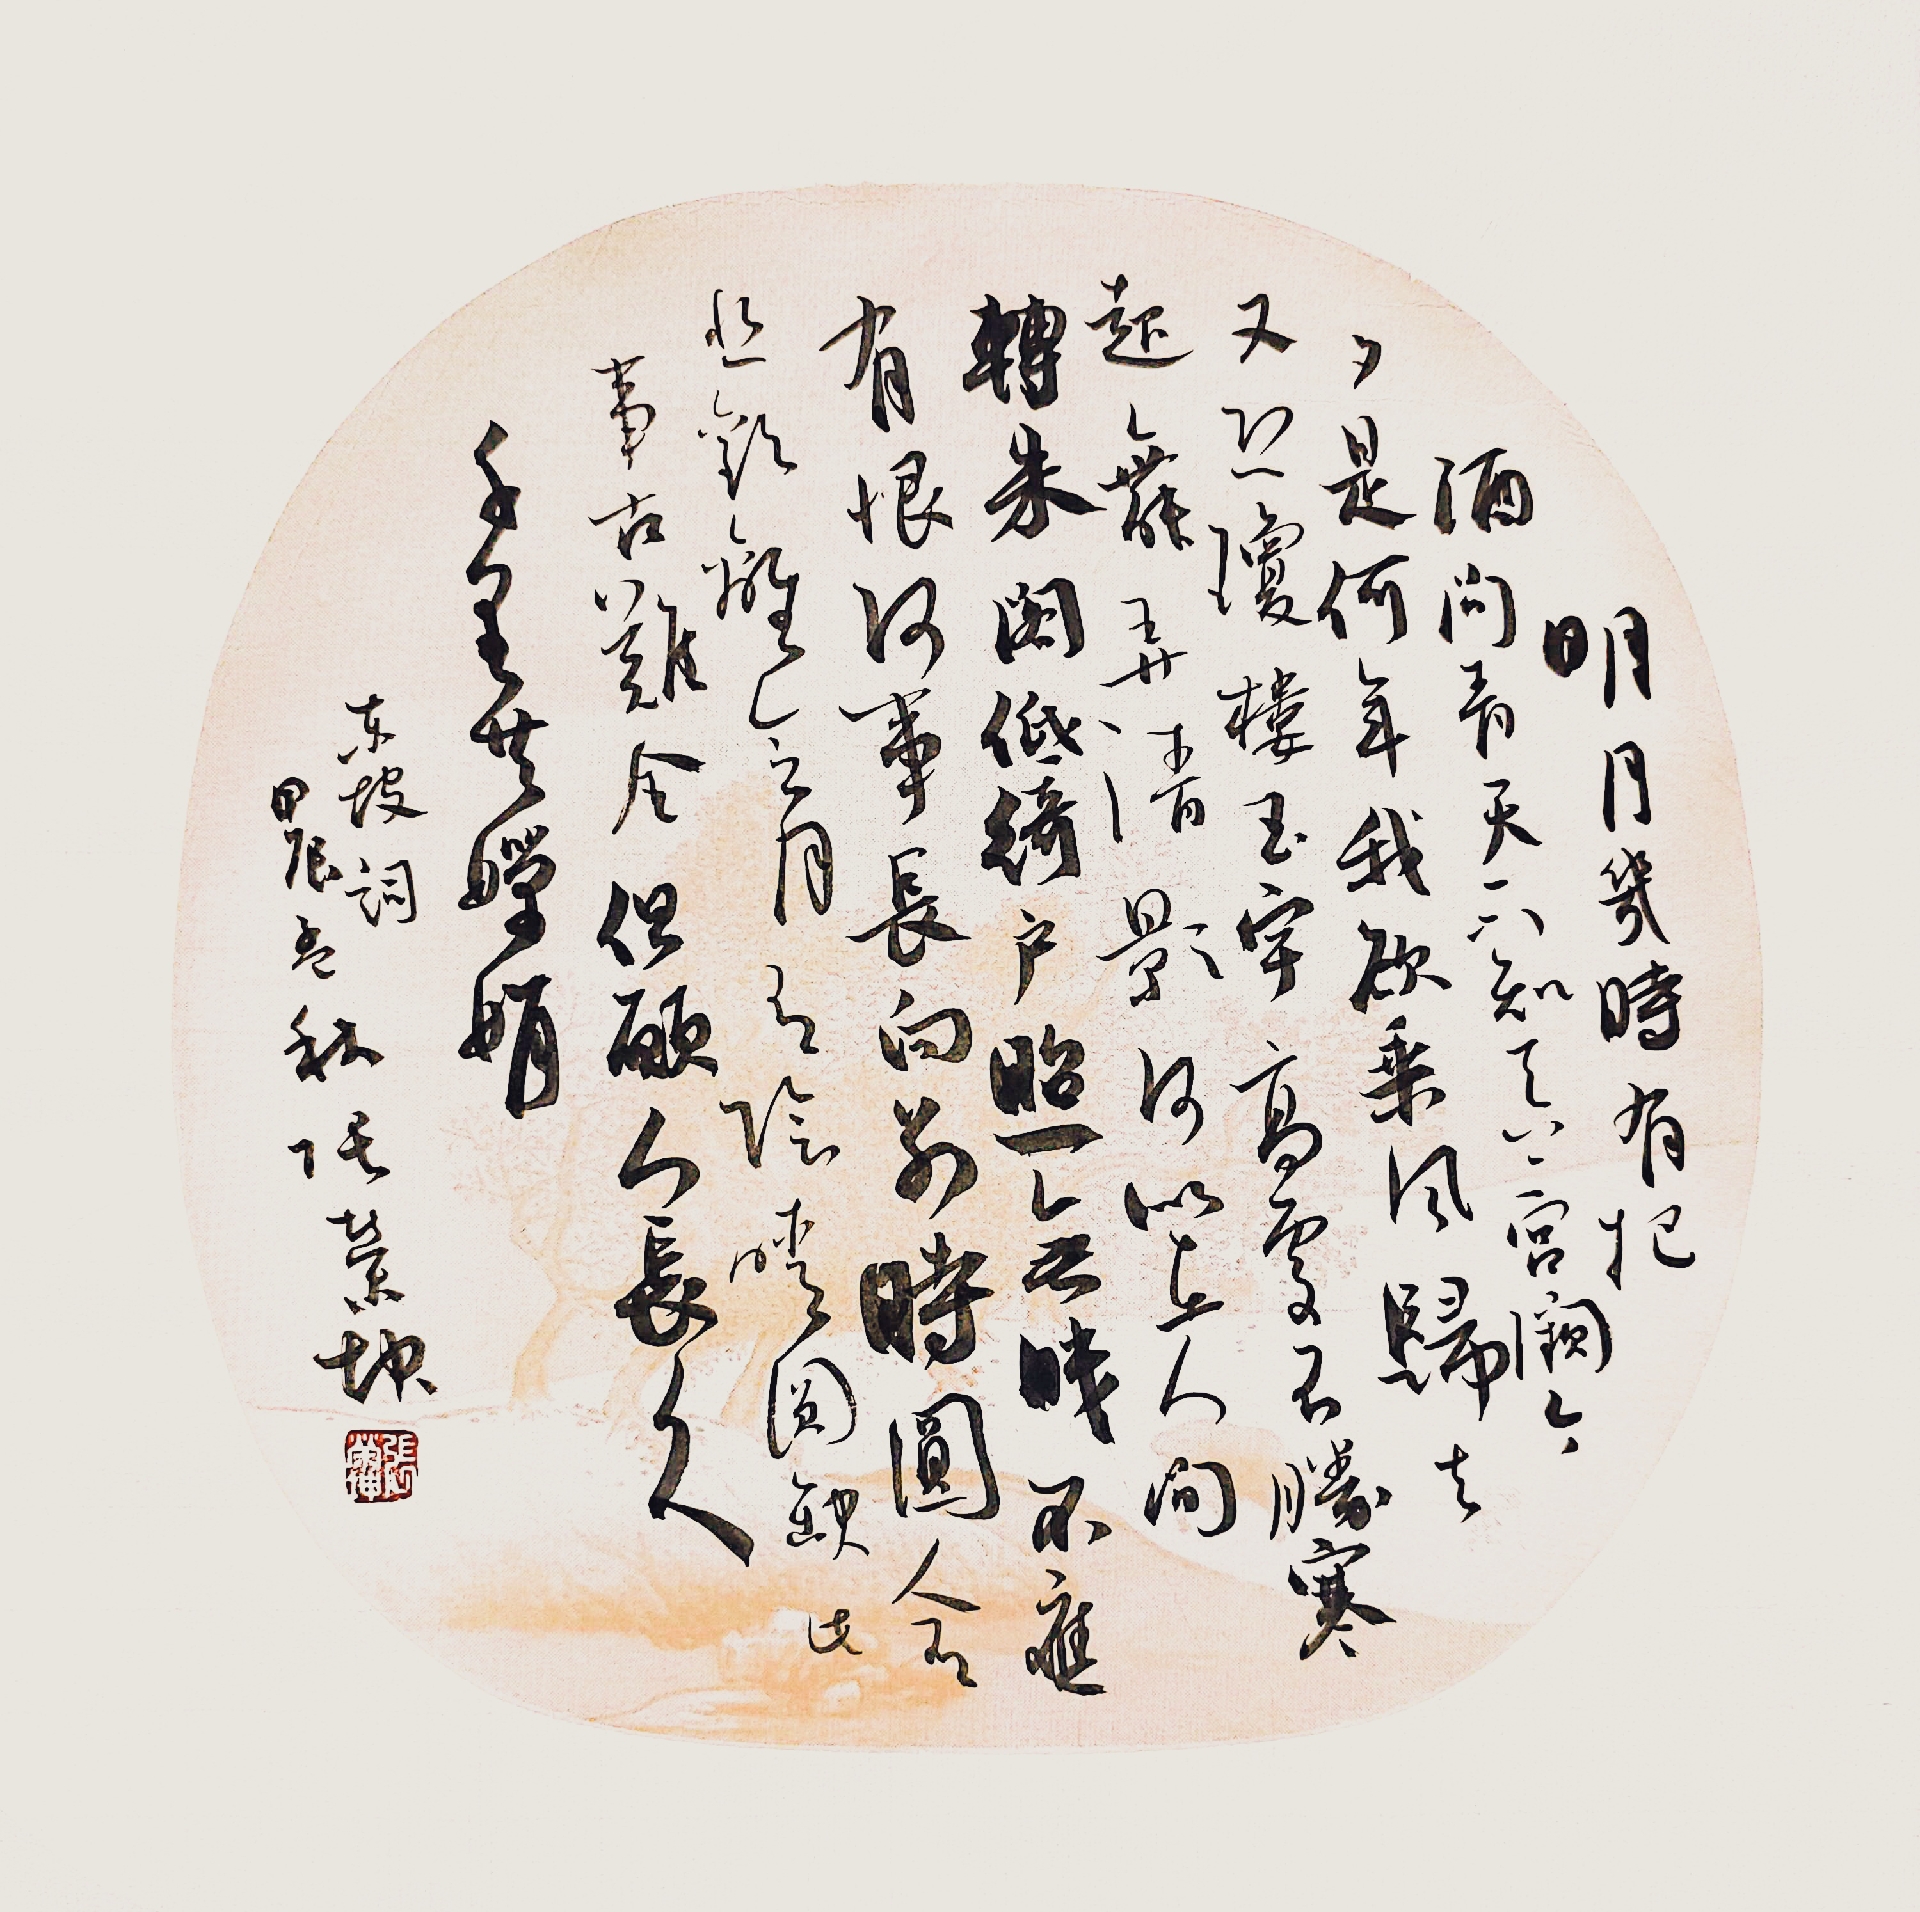 明月幾時有把
酒问青天不知天上宫阙今
夕是何年我欲乘风歸去
又恐瓊楼玉宇高處不勝寒
起舞弄清影何似在人间
轉朱阁低绮户照無眠不應
有恨何事長向别時圓人有
悲歡離合月有陰晴圆缺此
事古難全但願人長久
千里共嬋娟
东坡词
甲辰孟秋张荣坤